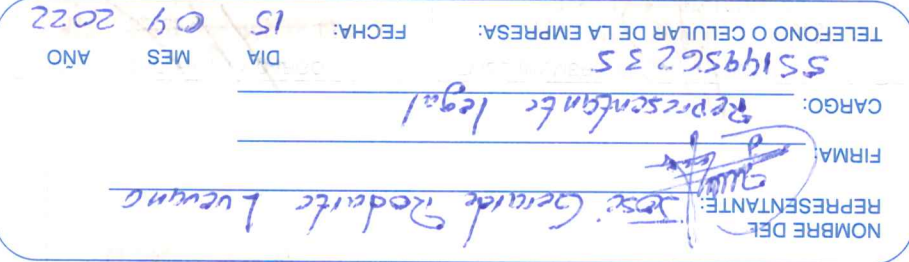 NOMBRE DEL
REPRESENTANTE: José Gerardo Rodarte Luevano
FIRMA:
CARGO: Representante legal
5514956235
TELEFONO O CELULAR DE LA EMPRESA: FECHA: 15 04 2022
DIA MES AÑO